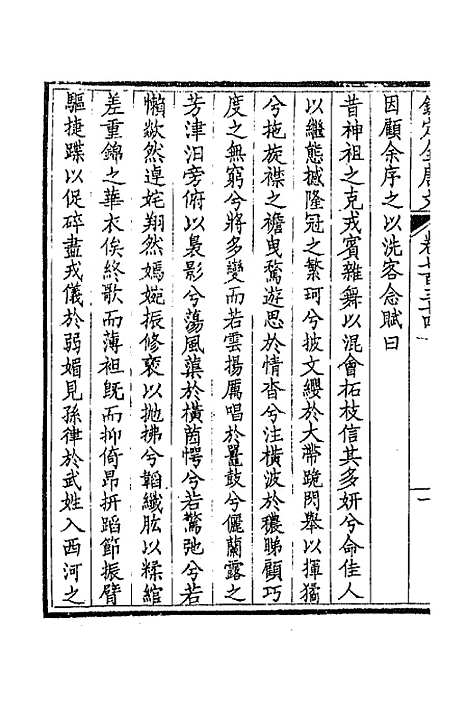 欽定全唐文 卷七百三十四 一
因顧余序之以洗客念賦曰
昔神祖之克戎賓雜舞以混會柘枝信其多妍兮命佳人
以繼態撼隆冠之繁珂兮披文纓於大帶跪閃舉以揮㩋
兮拖旋襟之襜曳騖遊思於情杳兮注橫波於穠睇顧巧
度之無窮兮將多變而若雲揚厲唱於鼉鼓兮儷蘭露之
芳津汨旁俯以裊影兮蕩風蕖於橫茵愕兮若驚弛兮若
懶歘然遑姹翔然嫣婉振修裒以拋拂兮韜纖肱以糅綰
差重錦之華衣俟終歌而薄袒既而抑倚昂拚蹈節振臂
驅捷蹀以促碎盡戎儀於弱媚見孫律於武姓入西河之